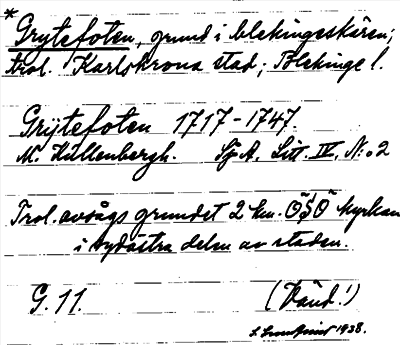 * Grytefoten, grund i blekingeskären;
trol. Karlskrona stad; Blekinge l.
Grÿtefoten 1717-1747.
M. Hüllenbergh. Sj.A. Litt. IV, N:o 2
Trol. avsågs grundet 2 km. OSO kyrkan
i sydöstra delen av staden.
G. 11. (Vänd!)
1938.